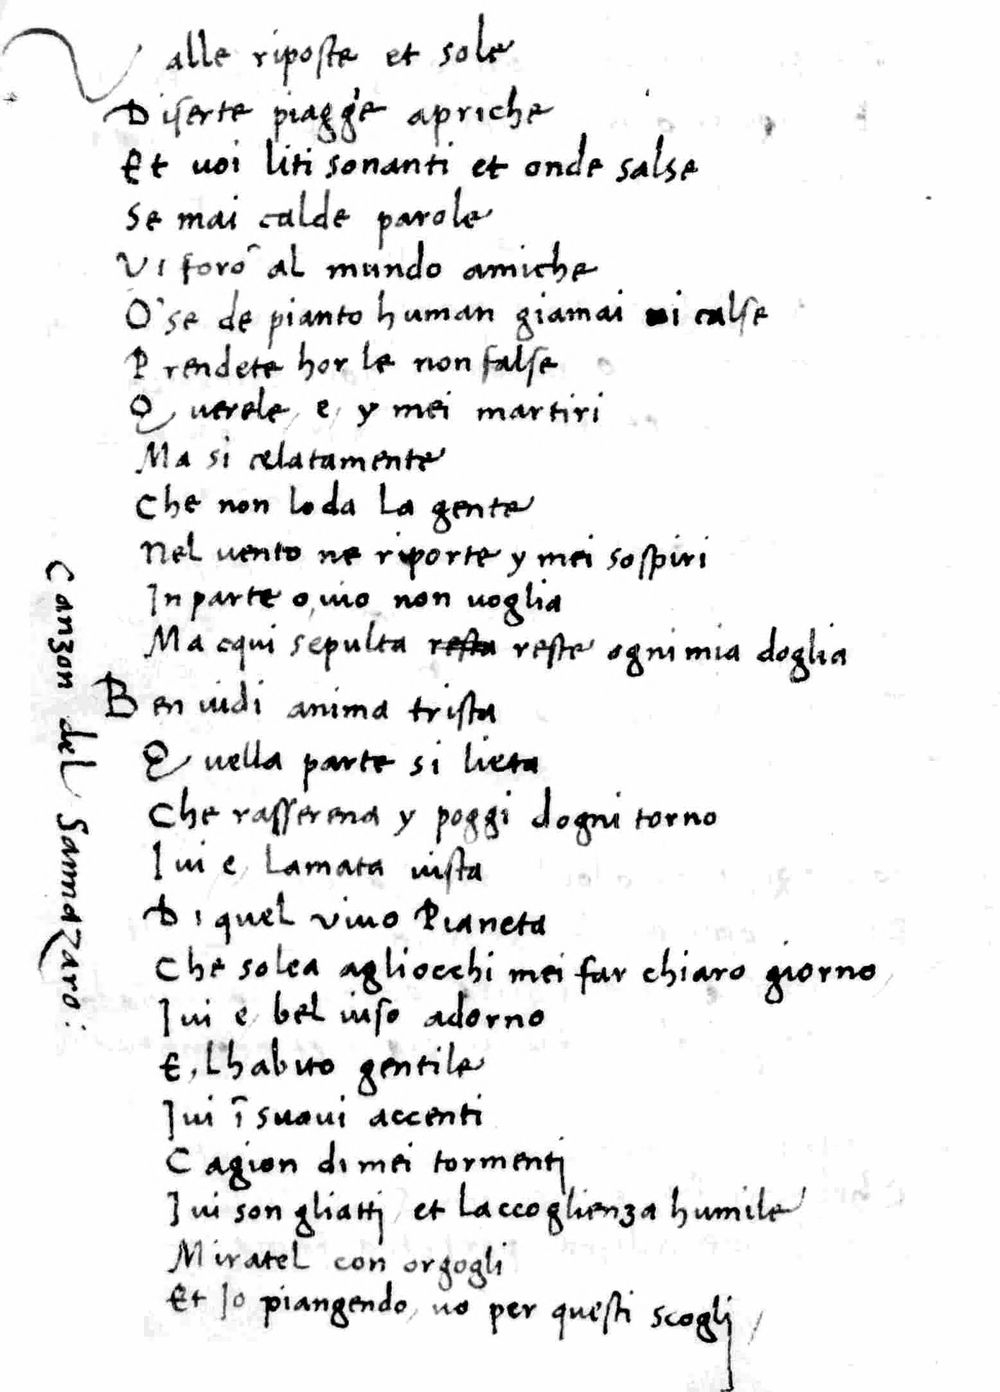 Valle riposte et sole
Diserte piagge apriche
Et voi liti sonanti et onde salse
Se mai calde parole
Vi foro᷉ al mundo amiche
O'se de pianto human giamai ui calse
Prendete hor le non false
Querele e y mei martiri
Ma si celatamente
Che non loda la gente
Nel uento ne riporte y mei sospiri
In parte ouio non uoglia
Ma cqui sepulta resta reste ogni mia doglia
Ben uidi anima trista
Quella parte si lieta
Che rasserena y poggi dogni torno
Iui e lamata uista
Di quel viuo Pianeta
Che solea agliocchi mei far chiaro giorno
Iui e bel uiso adorno
E, Lhabito gentile
Iui i᷉ suaui accenti
Cagion di mei tormentj
Iui son gliattj et Laccoglienza humile
Miratel con orgogli
Et Io piangendo uo per questi scoglj
Canzon del Sannazaro: